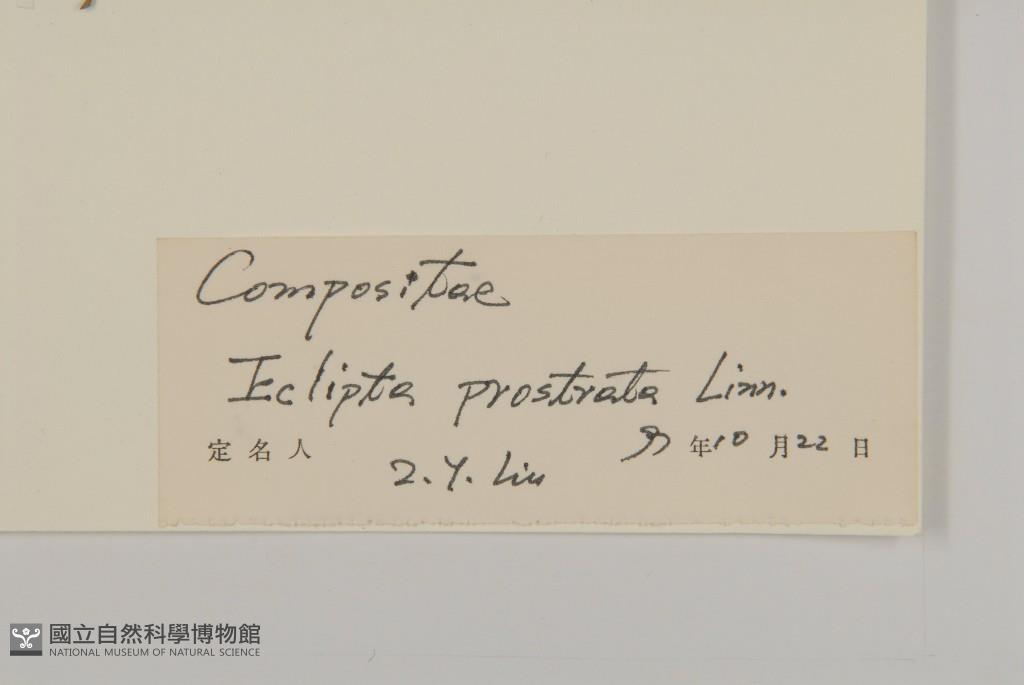 Compositae
Eclipta prostrata Linn.
定名人 年10月22日
Z. Y. Liu
國立自然科學博物館
NATIONAL MUSEUM OF NATURAL SCIENCE